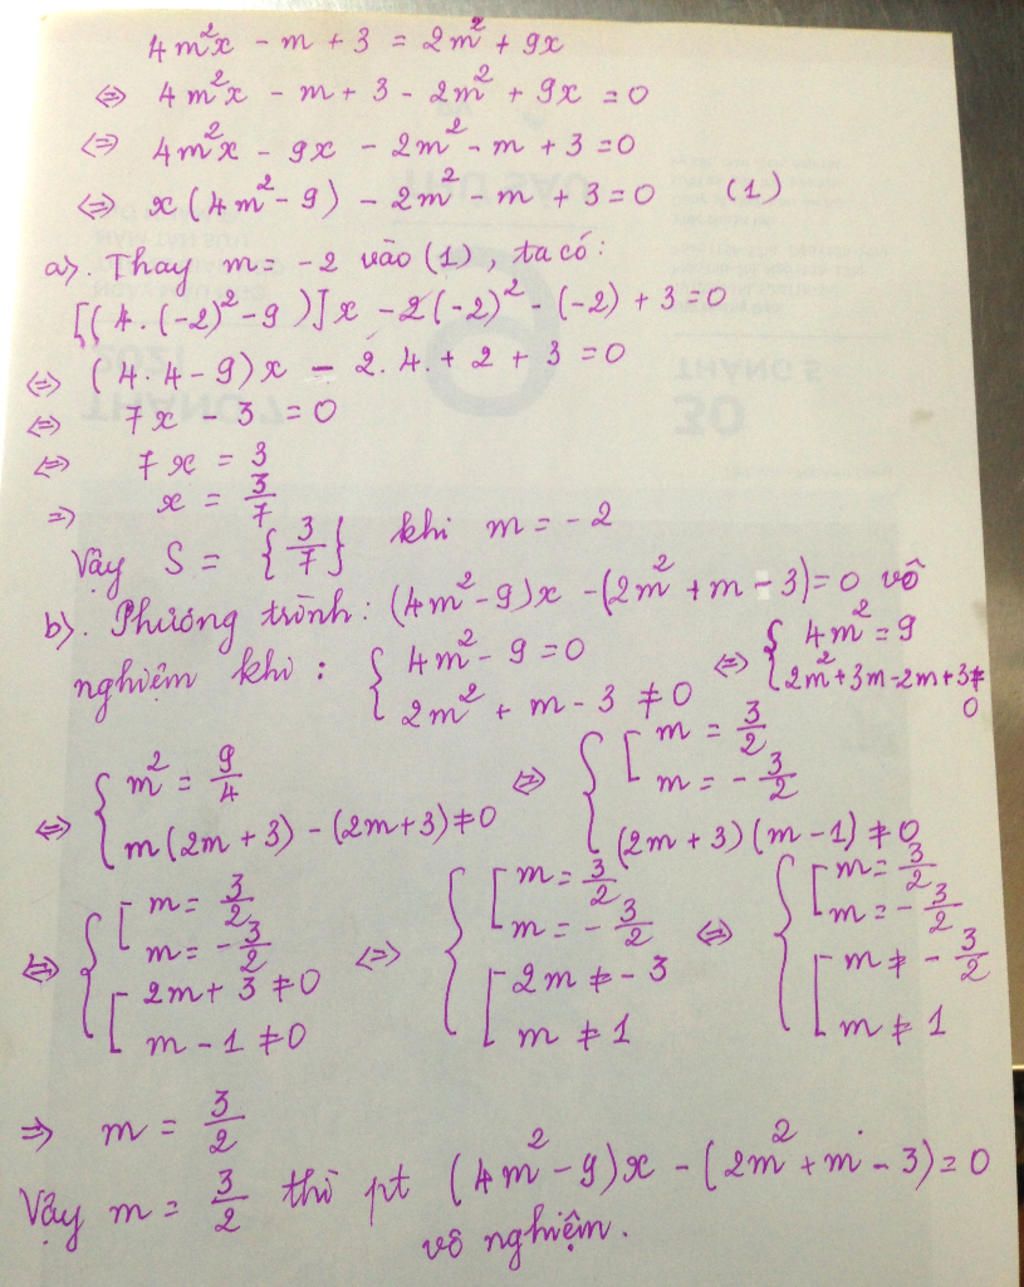 4m²x - m + 3 = 2m² + 9x
⇔ 4m²x - m + 3 - 2m² + 9x = 0
⇔ 4m²x - 9x - 2m² - m + 3 = 0
⇔ x(4m² - 9) - 2m² - m + 3 = 0 (1)
a). Thay m = -2 vào (1), ta có:
[(4.(-2)² - 9)]x - 2(-2)² - (-2) + 3 = 0
⇔ (4.4 - 9)x - 2.4. + 2 + 3 = 0
⇔ 7x - 3 = 0
⇔ 7x = 3
⇒ x = 3/7
Vậy S = {3/7} khi m = -2
b). Phương trình: (4m² - 9)x - (2m² + m - 3) = 0 vô
nghiệm khi: { 4m² - 9 = 0 ⇔ { 4m² = 9
2m² + m - 3 ≠ 0 2m² + 3m - 2m + 3 ≠ 0
⇔ { m² = 9/4 ⇔ { [ m = 3/2
m = -3/2
m(2m + 3) - (2m + 3) ≠ 0 (2m + 3)(m - 1) ≠ 0
⇔ { [ m = 3/2 ⇔ { [ m = 3/2 ⇔ { [ m = 3/2
m = -3/2 m = -3/2 m = -3/2
[ 2m + 3 ≠ 0 [ 2m ≠ -3 [ m ≠ -3/2
m - 1 ≠ 0 m ≠ 1 m ≠ 1
⇒ m = 3/2
Vậy m = 3/2 thì pt (4m² - 9)x - (2m² + m - 3) = 0
vô nghiệm.
THÁNG 5
30